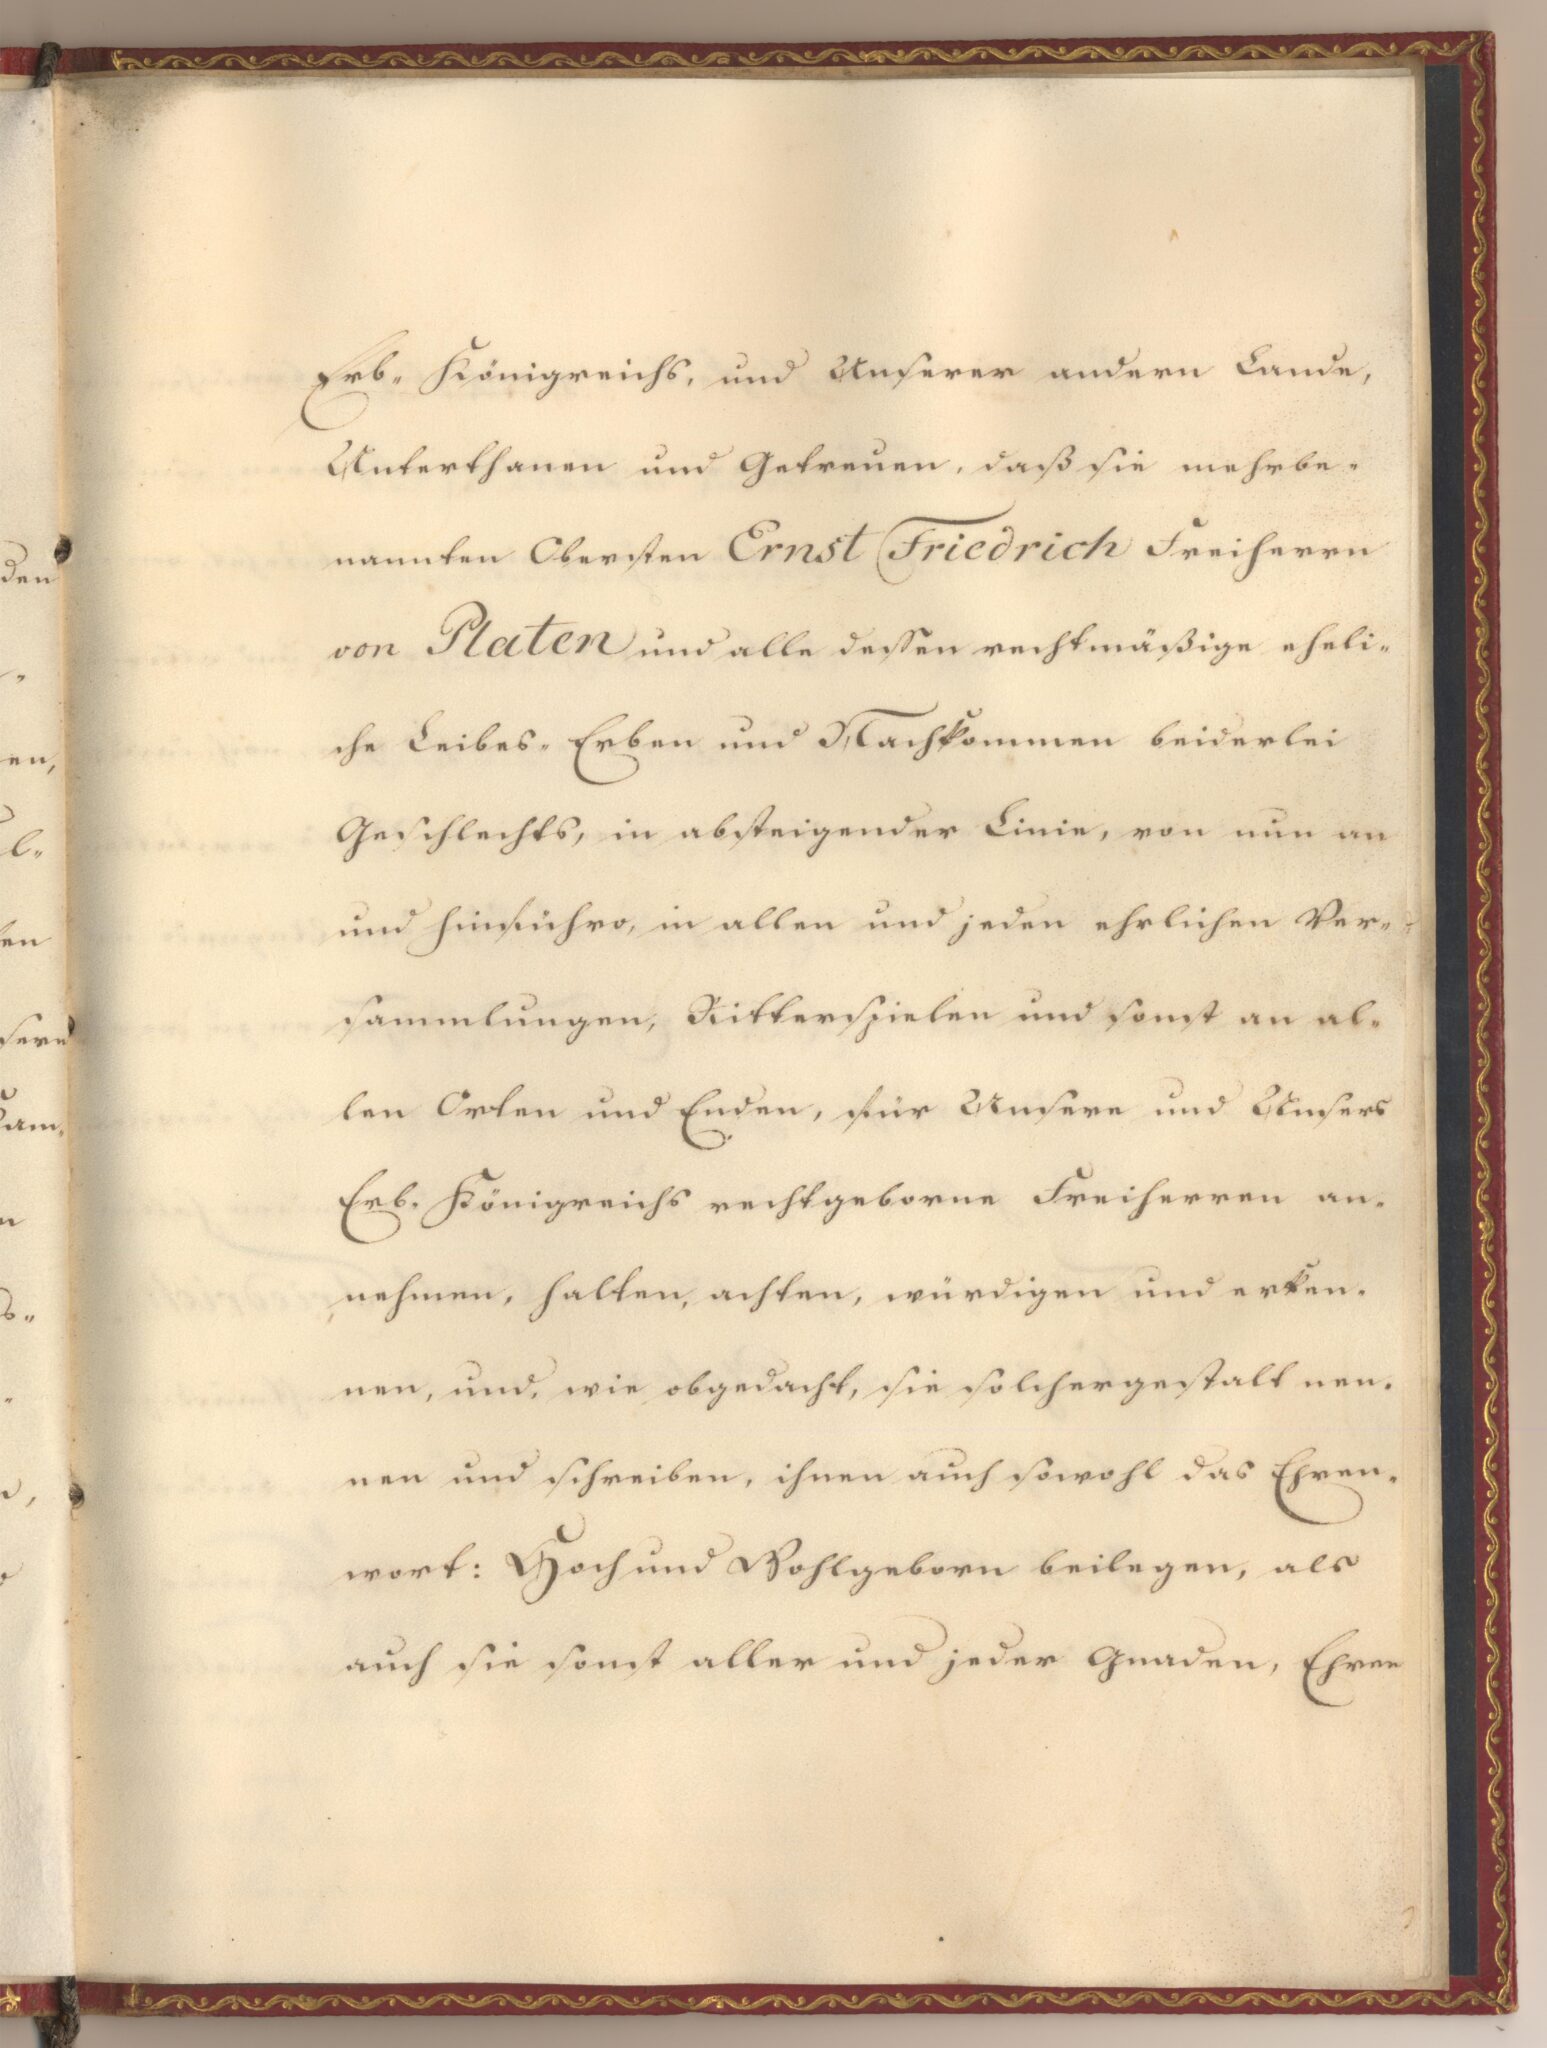 Erb- Königreichs, und Unserer andern Lande,
Unterthanen und Getreuen, daß sie mehrbe-
nannten Obersten Ernst Friedrich Freiherrn
von Platen und alle dessen rechtmäßige eheli-
che Leibes- Erben und Nachkommen beiderlei
Geschlechts, in absteigender Linie, von nun an
und hinführo, in allen und jeden ehrlichen Ver-
sammlungen, Ritterspielen und sonst an al-
len Orten und Enden, für Unsere und Unsers
Erb- Königreichs rechtgeborne Freiherren an-
nehmen, halten, achten, würdigen und erken-
nen, und, wie obgedacht, sie solchergestalt nen-
nen und schreiben, ihnen auch sowohl das Ehren-
wort: Hoch und Wohlgeborn beilegen, als
auch sie sonst aller und jeder Gnaden, Ehren